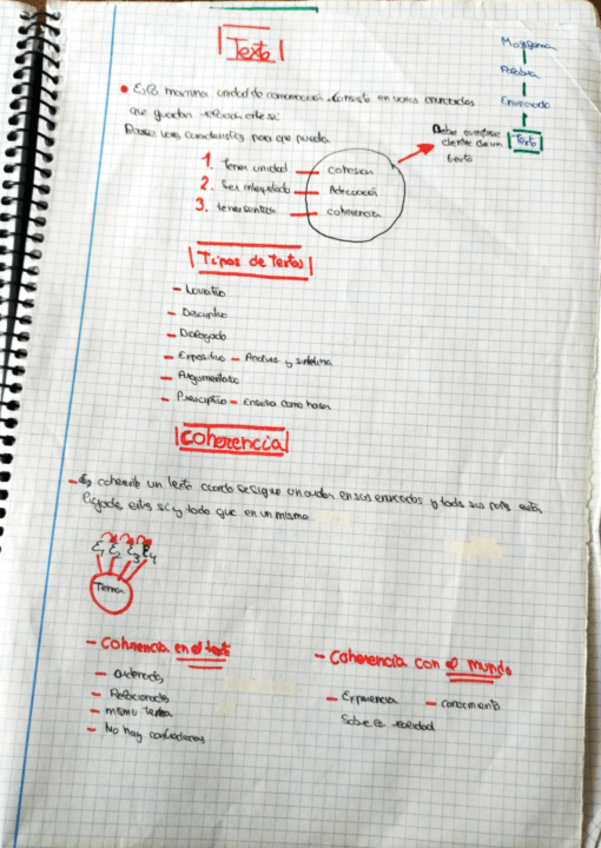 Texto
Monema
Palabra
Enunciado
Texto
Es la maxima unidad de comunicación. Consiste en varios enunciados
que guardan relacion entre si
Posee unas caracteristicas para que pueda:
Debe cumplirse
dentro de un
texto
1. Tener unidad — cohesion
2. Ser interpretado — Adecuación
3. tener sentido — coherencia
Tipos de textos
- Narrativo
- Descriptivo
- Dialogado
- Expositivo - Analiza y sintetiza
- Argumentativo
- Prescriptivo - Enseña como hacer
Coherencia
- Es coherente un texto cuando se sigue un orden en sus enunciados y todas sus partes estan
ligadas entre sí y todo que en un mismo
E1 E2 E3 E4
Tema
- Coherencia en el texto
- Ordenados
- Relacionados
- mismo tema
- No hay contradicciones
- Coherencia con el mundo
- Experiencia - conocimiento
Sobre la realidad